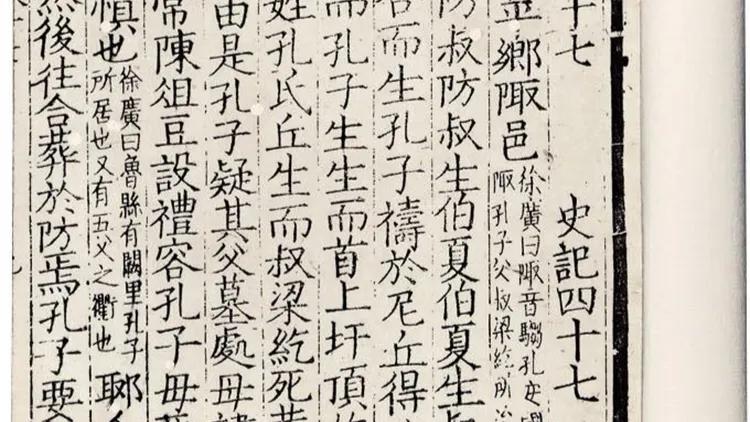 十七 史記四十七
鄉陬邑
徐廣曰陬音騶孔安
陬孔子父叔梁紇所治
防叔防叔生伯夏伯夏生
而生孔子禱於尼丘得
而孔子生生而首上圩頂
姓孔氏丘生而叔梁紇死葬
由是孔子疑其父墓處母
常陳俎豆設禮容孔子母
慎也
徐廣曰魯縣有闕里孔子
所居也又有五父之衢也
郰
然後往合葬於防焉孔子要